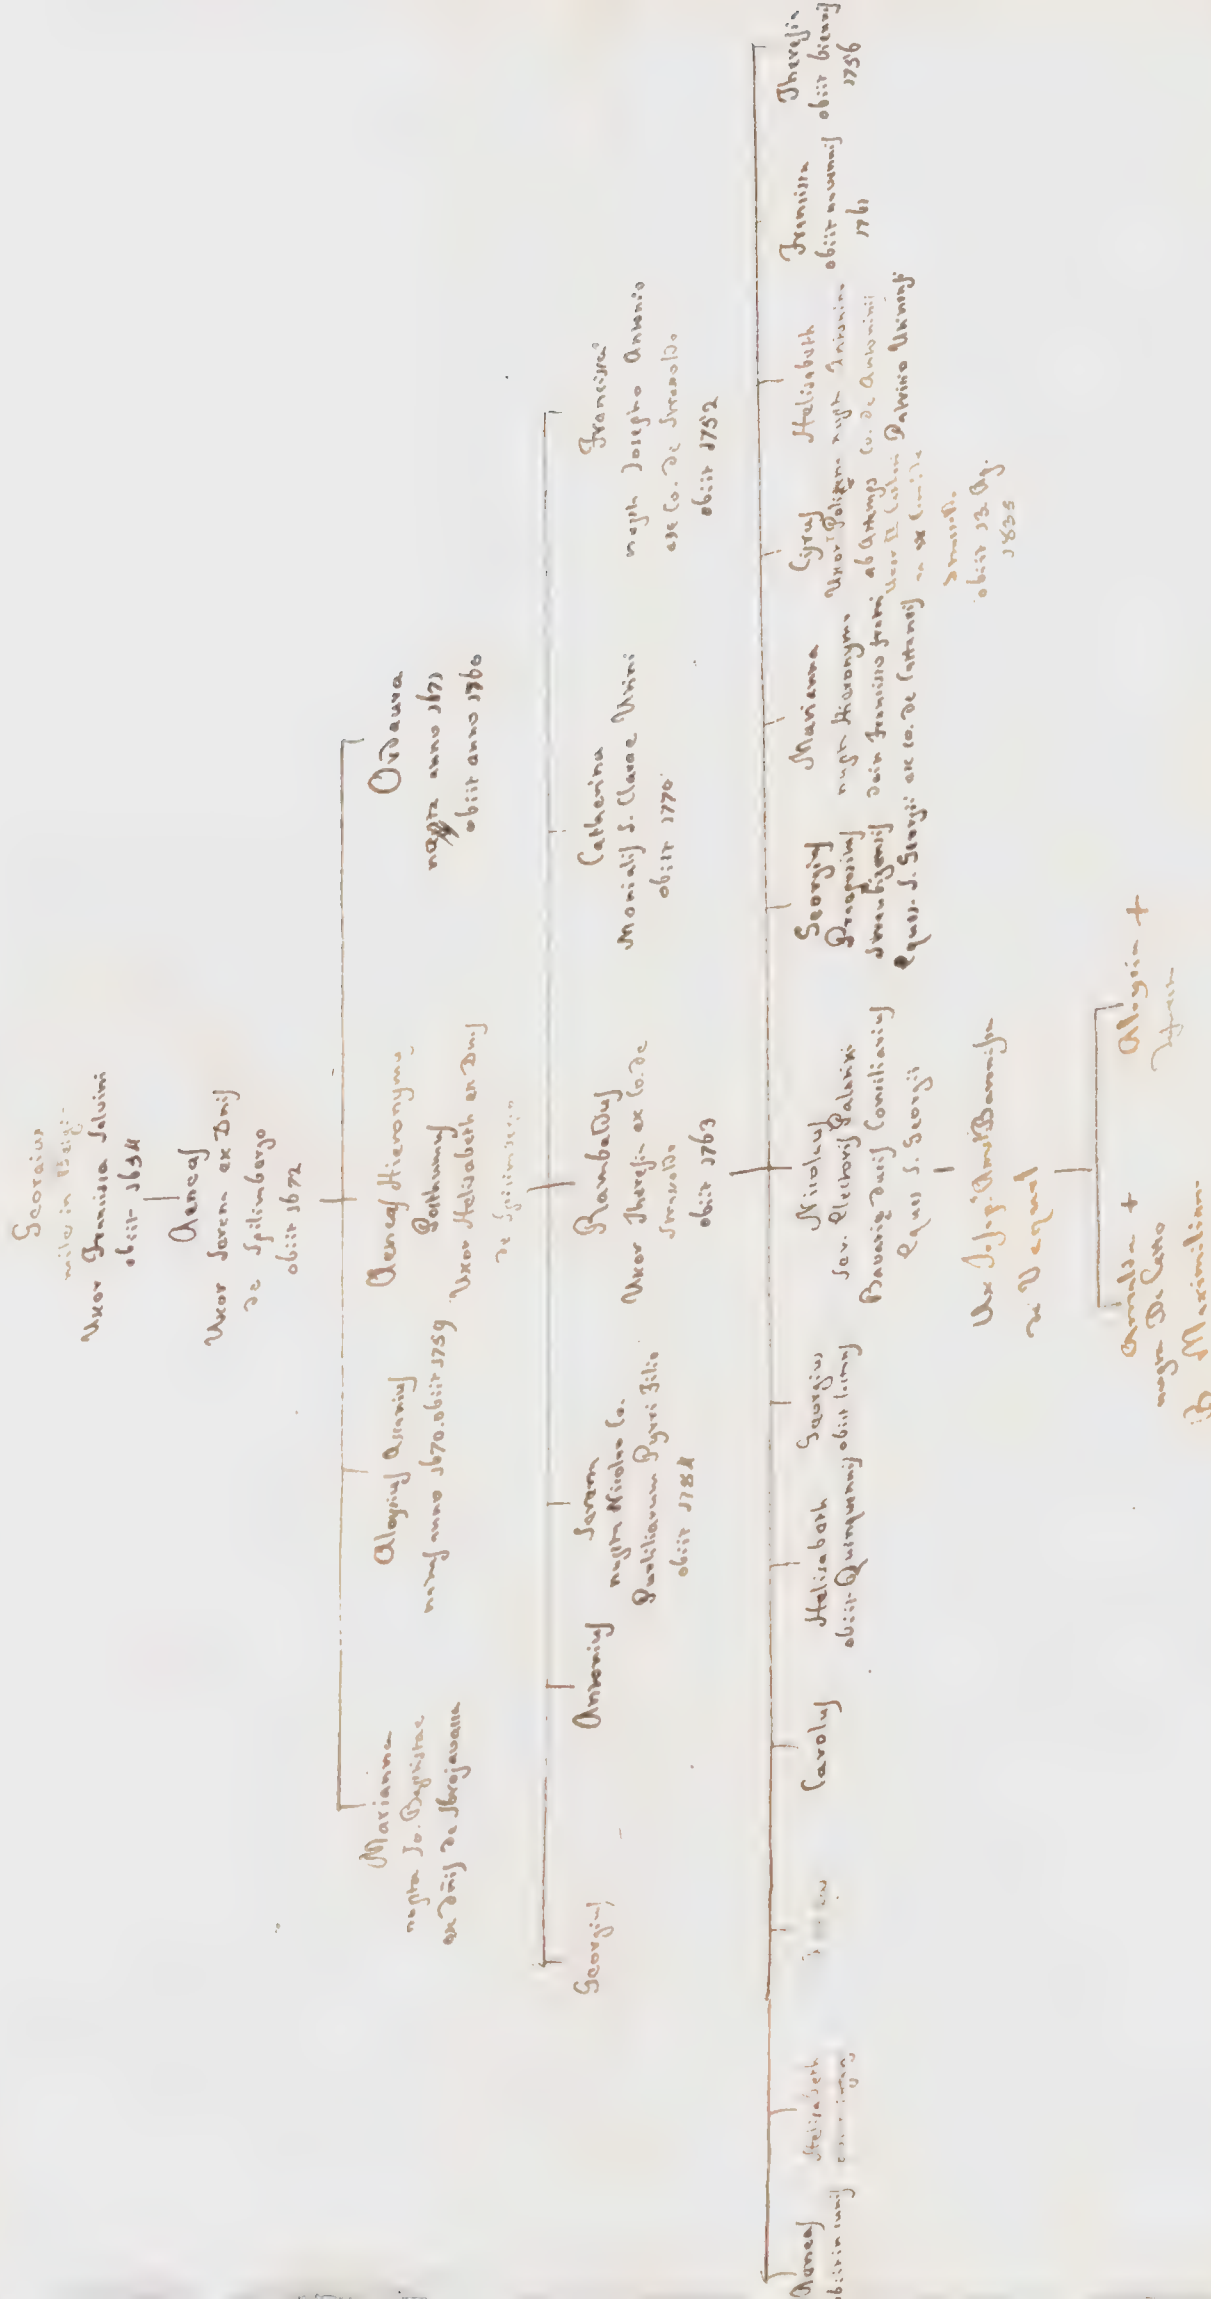 Georgius
miles in Belgi-
Uxor Francisca Salvini
obiit 1634
Aeneas
Uxor Serena ex Dnis
de Spilimbergo
obiit 1672
Marianna
nupta Jo. Baptistae
ex Dnis de Sbrojavacca
Aloysius Ascanius
natus anno 1670. obiit 1759
Aeneas Hieronymus
Posthumus
Uxor Helisabeth ex Dnis
de Spilimbergo
Ordaura
nupta anno 1673
obiit anno 1760
Georgius
Antonius
Serena
nupta Nicolao Co.
Pyrri Filio
obiit 1784
Rambaldus
Uxor Theresia ex Co. de
Strasoldo
obiit 1763
Catherina
Monialis S. Clarae Utini
obiit 1770
Francisca
nupta Josepho Antonio
ex Co. de Strasoldo
obiit 1752
Aeneas
obiit in cunis
Helisabeth
Carolus
Helisabeth
obiit Quinquennis
Georgius
obiit
Nicolaus
Ser. Electoris Palatini
Bavariae Ducis Consiliarius
Eques S. Georgii
Georgius
Praepositus
Straubigensis
Eques S. Georgii
Marianna
nupta Hieronymo
dein Francisco fratri
ex Co. de Cattaneis
Cyrus
Uxor I Polixena
ab Attimis
Uxor II
ex Comit. de
Strasoldo
obiit 13 Ag.
1835
Helisabeth
nupta Antonino
Co. de Antoninii
Patritio Utinensi
Francisca
obiit novennis
1761
Theresia
obiit biennis
1756
Ux Baronissa
de
Amalia +
nupta De
B Maximilian-
Aloysia +